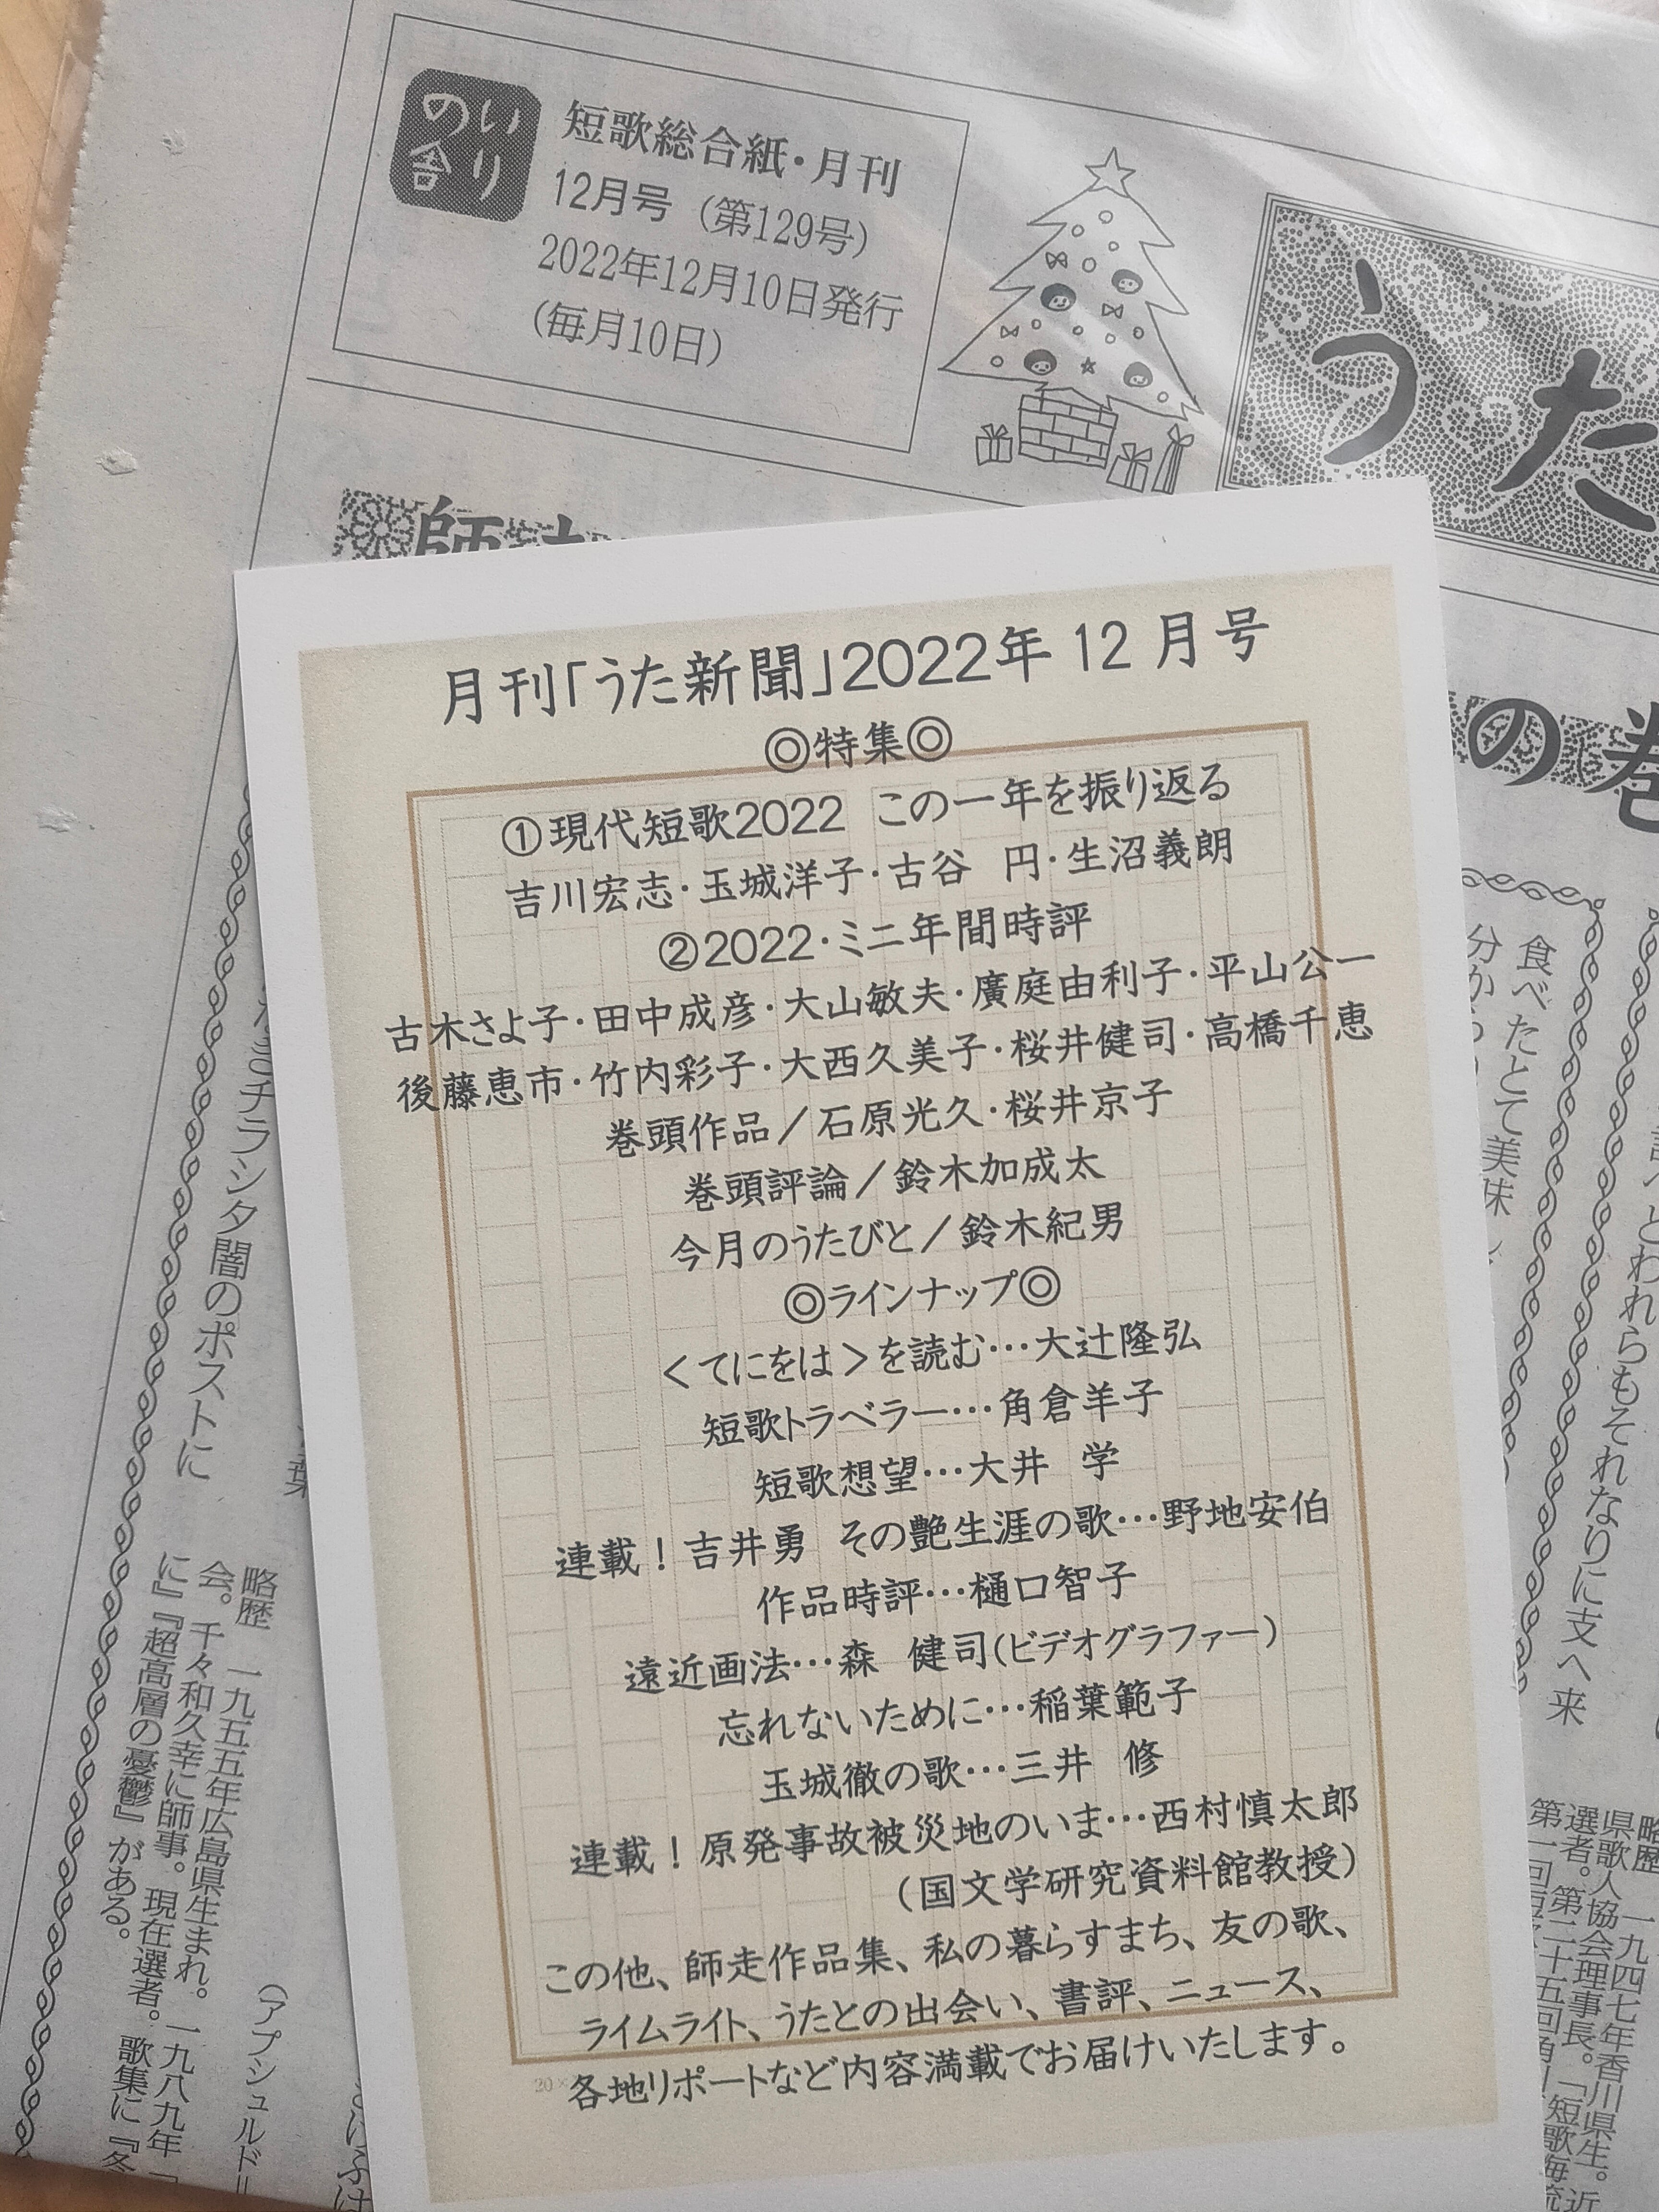 いりの舎
短歌総合紙・月刊
12月号（第129号）
2022年12月10日発行
（毎月10日）
うた
の巻
月刊「うた新聞」2022年12月号
◎特集◎
①現代短歌2022　この一年を振り返る
吉川宏志・玉城洋子・古谷　円・生沼義朗
②2022・ミニ年間時評
古木さよ子・田中成彦・大山敏夫・廣庭由利子・平山公一
後藤恵市・竹内彩子・大西久美子・桜井健司・高橋千恵
巻頭作品／石原光久・桜井京子
巻頭評論／鈴木加成太
今月のうたびと／鈴木紀男
◎ラインナップ◎
＜てにをは＞を読む…大辻隆弘
短歌トラベラー…角倉羊子
短歌想望…大井　学
連載！吉井勇　その艶生涯の歌…野地安伯
作品時評…樋口智子
遠近画法…森　健司（ビデオグラファー）
忘れないために…稲葉範子
玉城徹の歌…三井　修
連載！原発事故被災地のいま…西村慎太郎
（国文学研究資料館教授）
この他、師走作品集、私の暮らすまち、友の歌、
ライムライト、うたとの出会い、書評、ニュース、
各地リポートなど内容満載でお届けいたします。
食べたとて美味し
分から
とわれらもそれなりに支へ来
略歴　一九四七年香川県生。
県歌人協会理事長。「短歌海流
選者。第二十五回角川
チラシタ闇のポストに
（アプシュルド＝
略歴　一九五五年広島県生まれ。一九八九年「
会。千々和久幸に師事。現在選者。歌集に『冬
に』『超高層の憂鬱』がある。